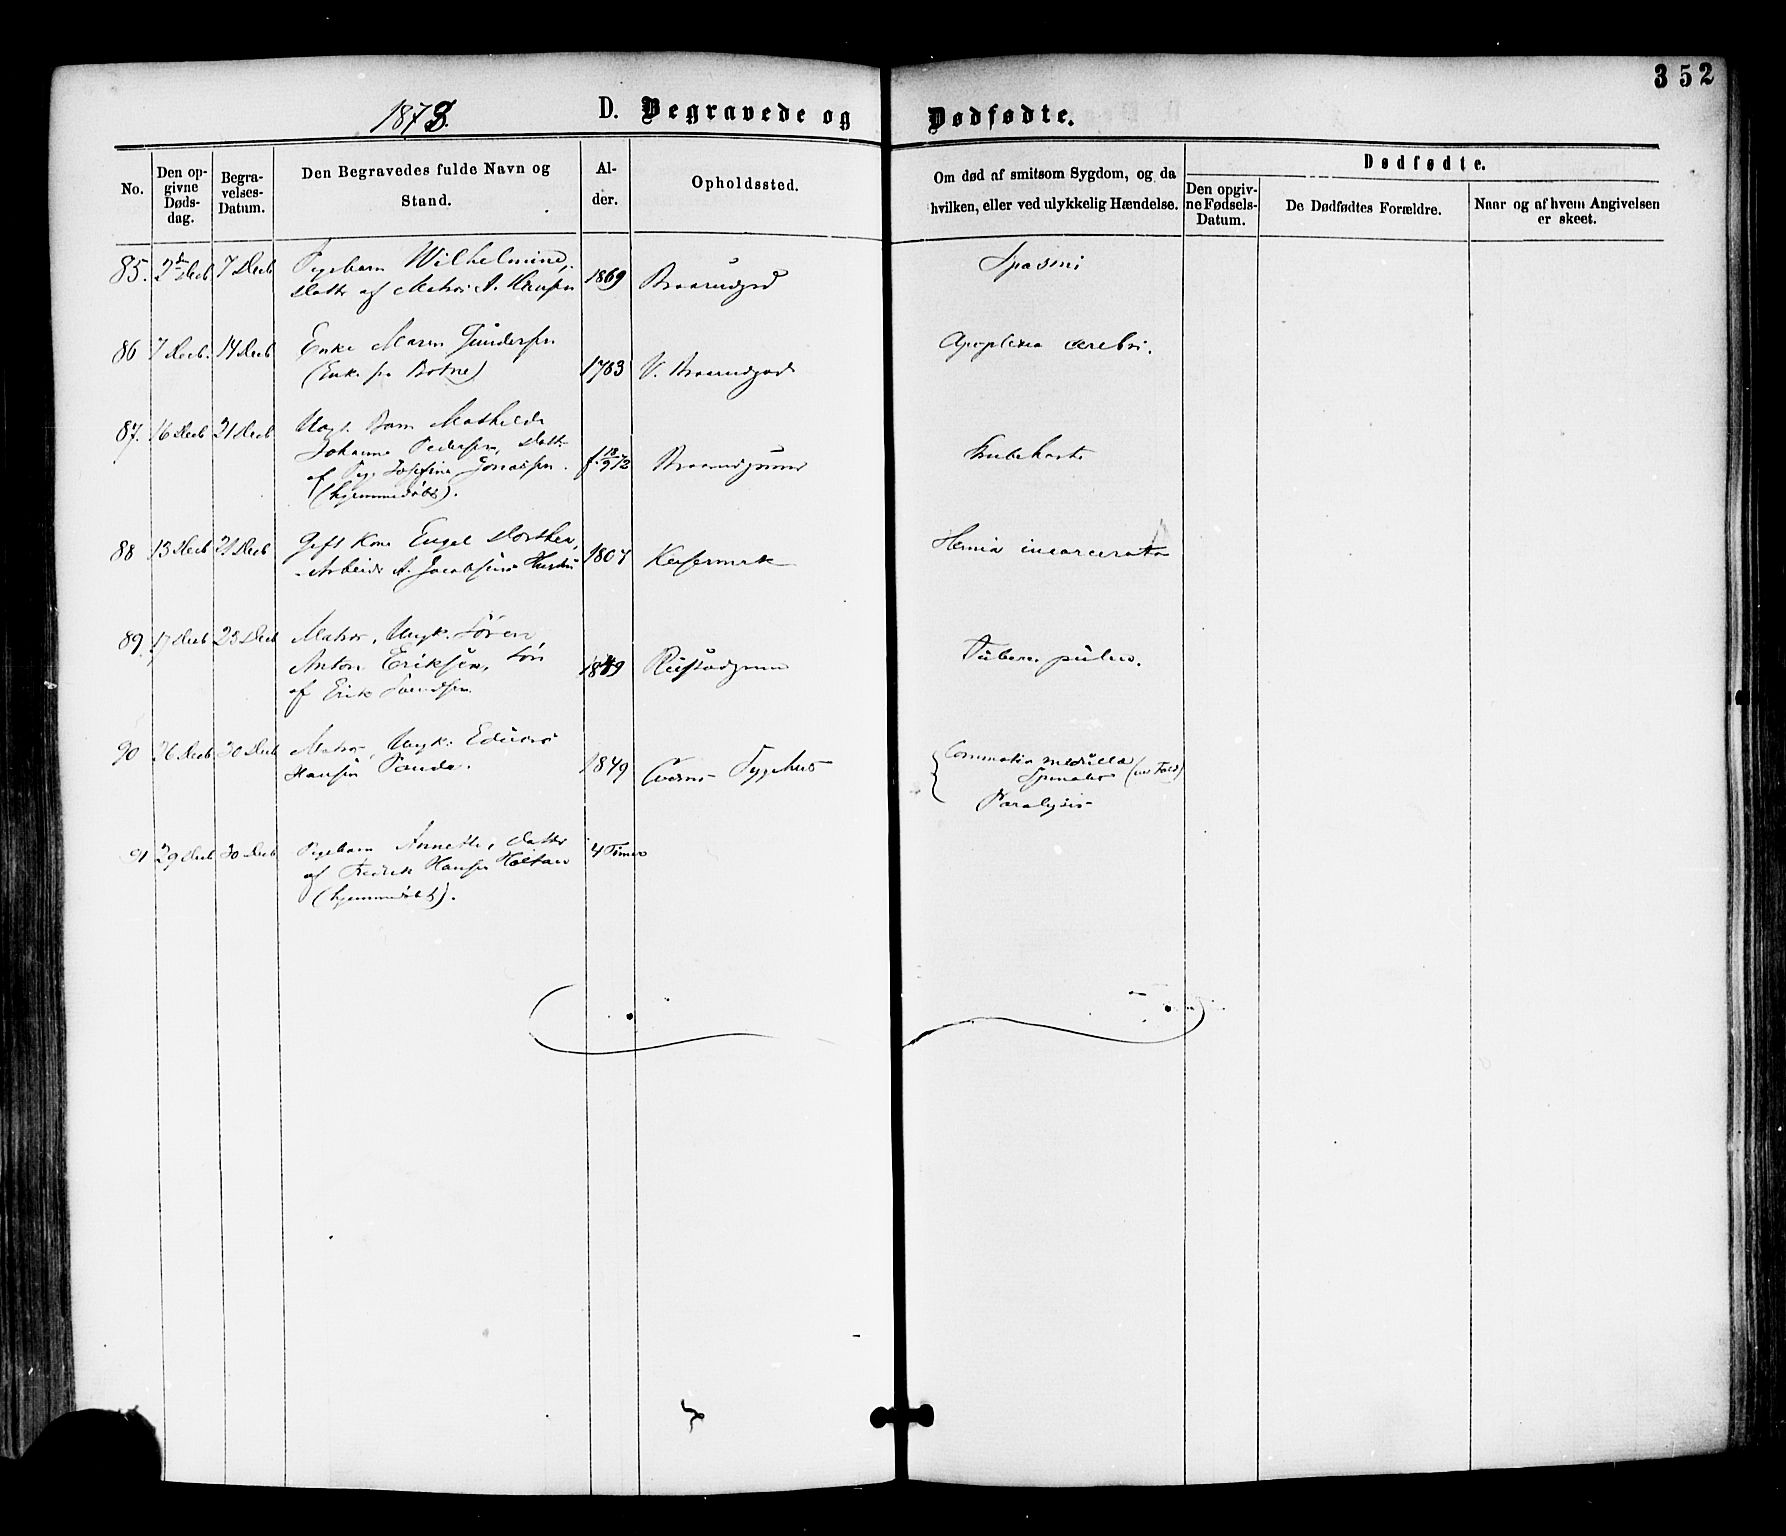 352
1873.
D. Begravede og Dødfødte.
No.
Den opgivne Dødsdag.
Begravelses-Datum.
Den Begravedes fulde Navn og Stand.
Alder.
Opholdssted.
Om død af smitsom Sygdom, og da
hvilken, eller ved ulykkelig Hændelse.
Dødfødte.
Den opgivne Fødsels-Datum.
De Dødfødtes Forældre.
Naar og af hvem Angivelsen er skeet.
85. 2 Decb 7 Decb Pigebarn Wilhelmine, 1869 Spasmi
Datter af Matros A. Hansen
86 7 Decb. 14 Decb Enke Maren Gundersen 1783 Apoplexia cerebri.
(Enke fra Botne)
87. 16 Decb 21 Decb Uægt. Barn Mathilde Strubehoste
Johanne Pedersen, Datter
af Pige Josefine Jonassen. f. 18/9 72
(hjemmedøbt).
88 13 Decb 21 Decb Gift Kone Engel Dorthea, 1807 Hernia incarcerata
Arbeids A. Jacobsens Hustru
89. 17 Decb 23 Decb Matros, Ungk. Søren
Anton Eriksen, Søn 1849 Tuberc. pulm.
af Erik Svendsen
90 26 Decb 30 Decb Matros, Ungk. Eduard 1849 Sygehus
Hansen
Commotio medulla
Spinalis
Paralysis
91 29 Decb 30 Decb Pigebarn Annette, Datter 4 Timer
af Fredrik Hansen Holtan
(hjemmedøbt).